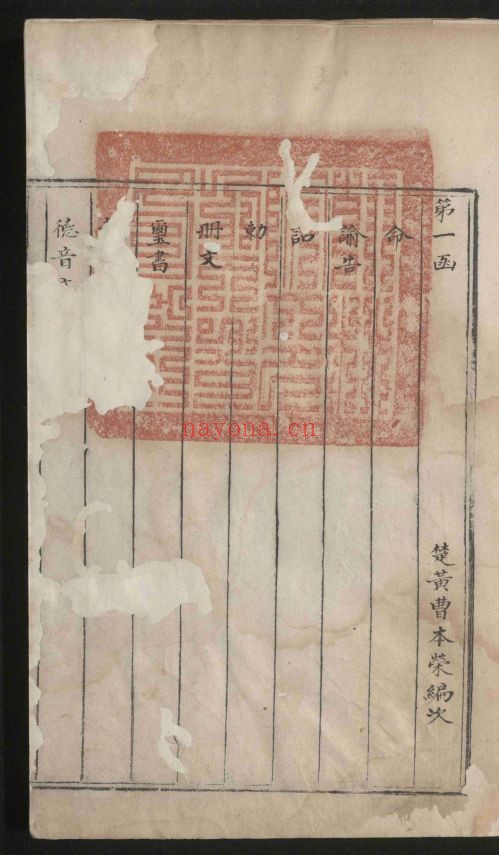 第一函
楚黃曹本榮編次
命
諭告
詔
敕
冊文
璽書
德音
nayona.cn